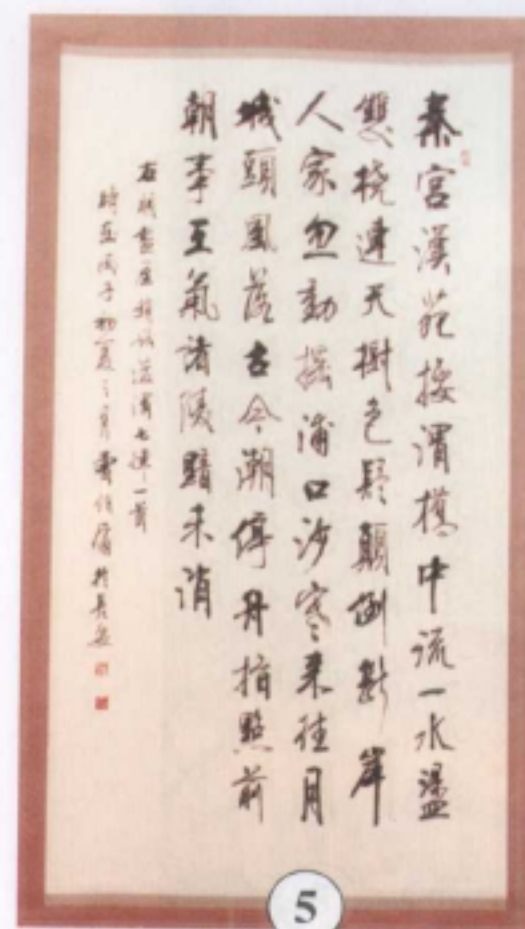 秦宮漢苑接渭橋中流一水盪
雙橈連天樹色疑顛倒斷岸
人家忽動搖浦口沙寒來往月
城頭風落古今潮停舟指點前
朝事王氣諸陵黯未消
右城畫
一首
時在丙子初夏之月
於長安
5